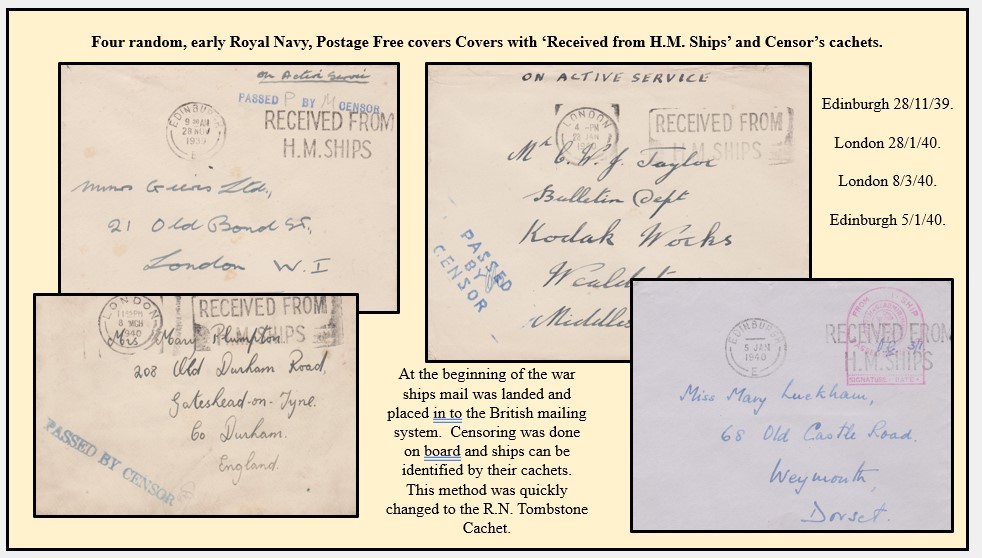 Four random, early Royal Navy, Postage Free covers Covers with ‘Received from H.M. Ships’ and Censor’s cachets.
On Active Service
PASSED P BY M CENSOR
EDINBURGH
9 30 AM
28 NOV
1939
E
RECEIVED FROM
H.M.SHIPS
Messrs Gieves Ltd.,
21 Old Bond St.,
London W.I
ON ACTIVE SERVICE
LONDON
4 -PM
28 JAN
1940
RECEIVED FROM
H.M.SHIPS
Mr C.W.J. Taylor
Bulletin Dept
Kodak Works
Weald
Middles
PASSED
BY
CENSOR
Edinburgh 28/11/39.
London 28/1/40.
London 8/3/40.
Edinburgh 5/1/40.
LONDON
8 MCH
1940
RECEIVED FROM
H.M.SHIPS
Mrs Mary Plumpton
208 Old Durham Road,
Gateshead-on-Tyne.
Co Durham.
England.
PASSED BY CENSOR
At the beginning of the war
ships mail was landed and
placed in to the British mailing
system. Censoring was done
on board and ships can be
identified by their cachets.
This method was quickly
changed to the R.N. Tombstone
Cachet.
EDINBURGH
5 JAN
1940
E
FROM SHIP
RECEIVED FROM
H.M.SHIPS
SIGNATURE DATE
Miss Mary Luckham,
68 Old Castle Road,
Weymouth,
Dorset.